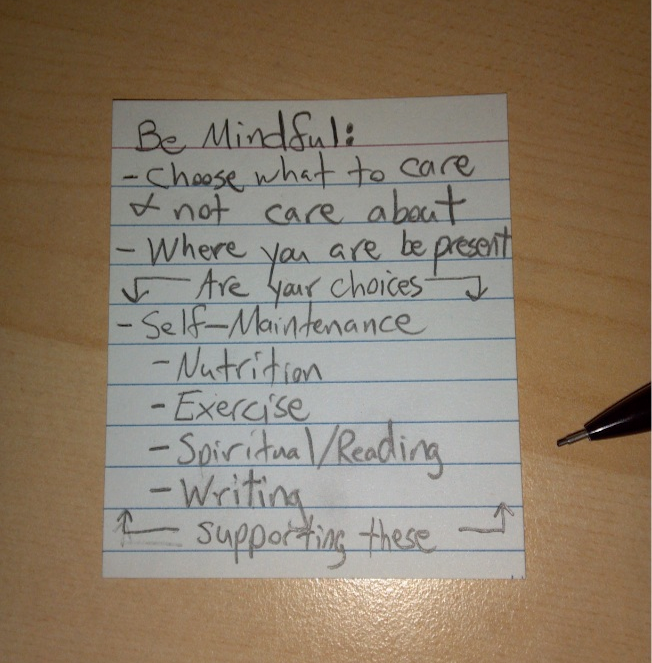 Be Mindful:
- Choose what to care
& not care about
- Where you are be present
↓ Are your choices ↓
- Self-Maintenance
- Nutrition
- Exercise
- Spiritual/Reading
- Writing
↑ supporting these ↑